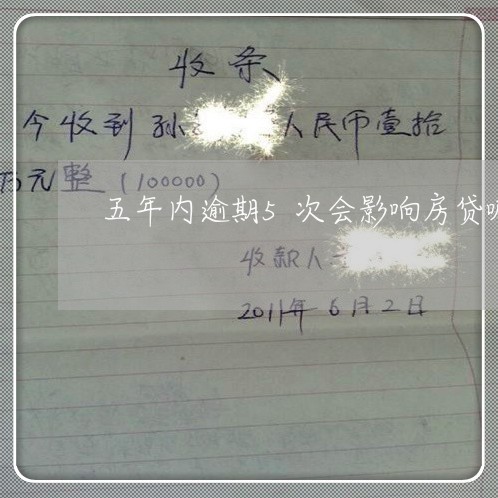 收条
今收到孙 人民币壹拾
万元整(100000)
五年内逾期5 次会影响房贷
收款人
2011年6月2日